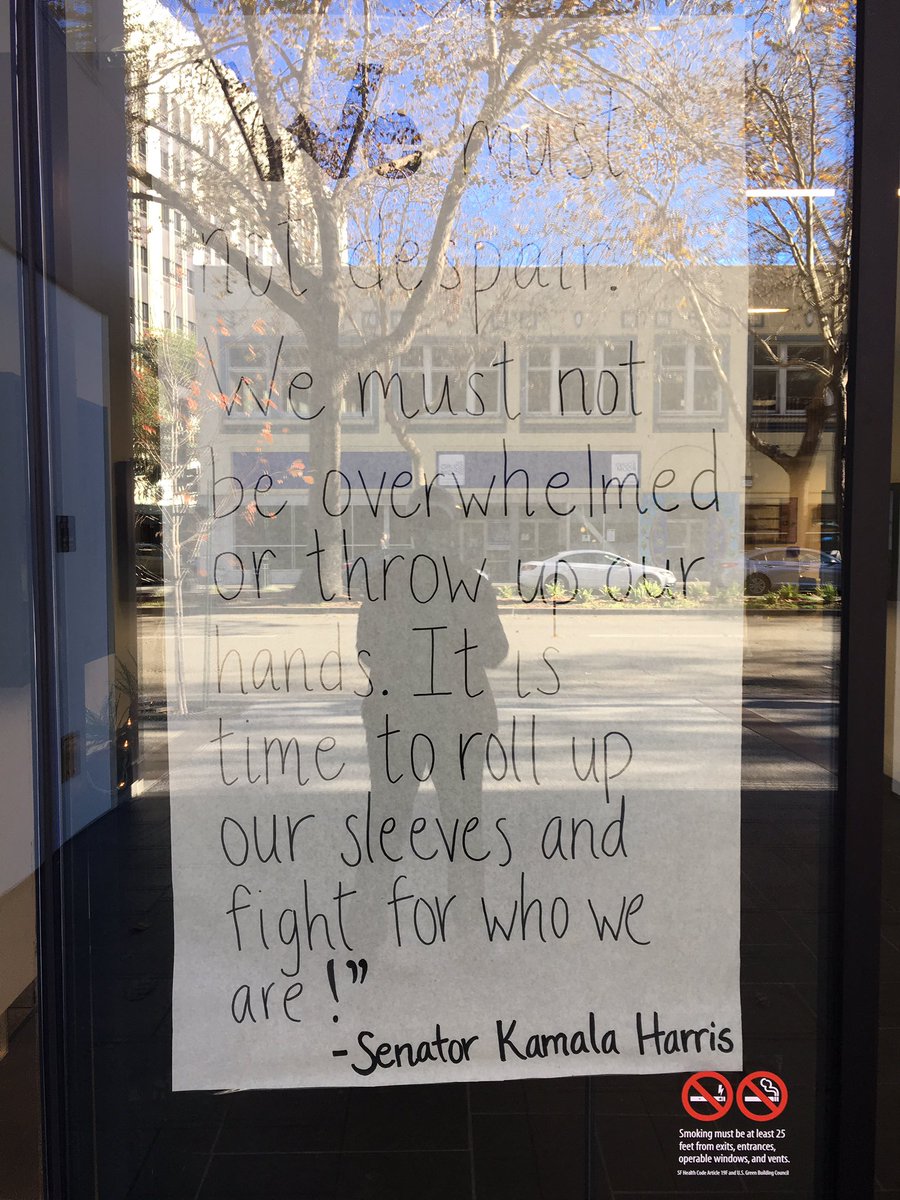 "We must
not despair.
We must not
be overwhelmed
or throw up our
hands. It is
time to roll up
our sleeves and
fight for who we
are!”
-Senator Kamala Harris
Smoking must be at least 25
feet from exits, entrances,
operable windows, and vents.
SF Health Code Article 19F and U.S. Green Building Council